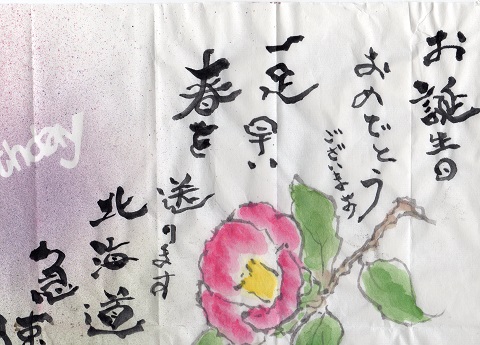 お誕生日
おめでとう
ございます
一足早い
春を
送ります
北海道
急
thday